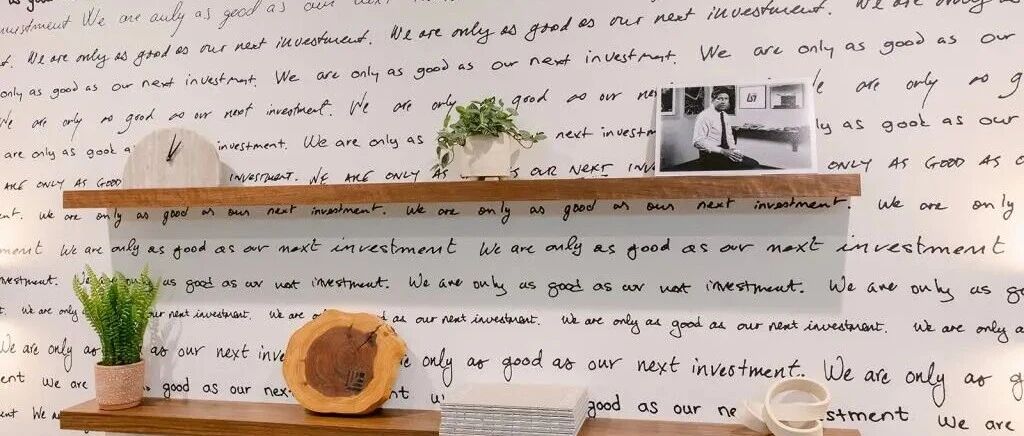 as good
investment We are only as good as our next
t. We are only as good as our next investment. We are only as good as our next investment. We are only as
only as good as our next investment. We are only as good as our next investment. We are only as good as our
We are only as good as our next investment. We are only good as our We are only as g
are only as good a investment. We are only as next investm ly as good as our
ARE ONLY AS GOOD INVESTMENT. WE ARE ONLY AS OUR NEXT INV ONLY AS GOOD AS O
ent. We are only as good as our next investment. We are only as good as our next investment. We are only
ment We are only as good as our next investment We are only as good as our next investment
investment. We are only as good as our next investment. We are only as good as our next investment. We are only as go
t. We are only our next investment. We are d as our next investment. We are only as good as our next investment. We are only a
We are only as as our next inve e only as good as our next investment. We are only as g
ent We are good as our next good as our ne stment We are